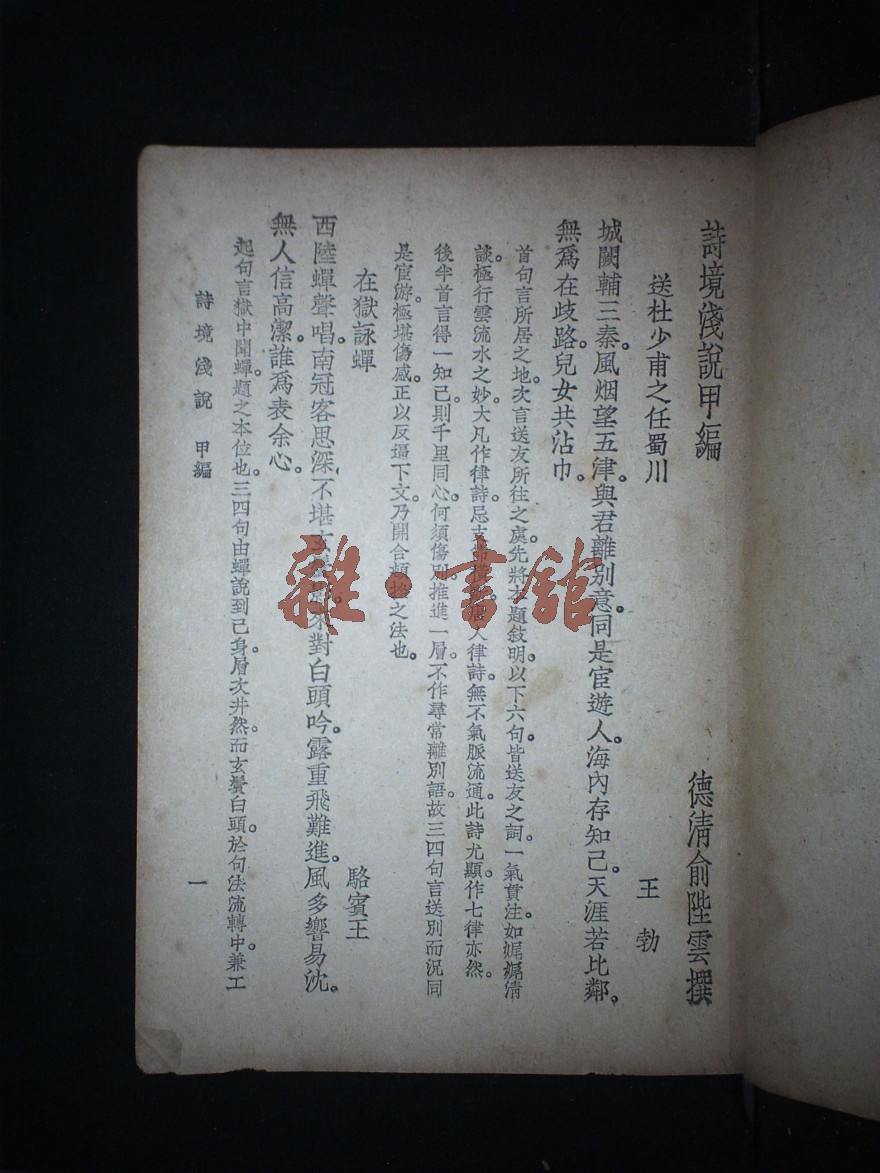 詩境淺說甲編
德清俞陛雲撰
送杜少甫之任蜀川
王勃
城闕輔三秦。風烟望五津。與君離別意。同是宦遊人。海內存知己。天涯若比鄰。
無爲在歧路。兒女共沾巾。
首句言所居之地。次言送友所往之處。先將本題敍明。以下六句皆送友之詞。一氣貫注。如娓娓清
談。極行雲流水之妙。大凡作律詩。忌支 人律詩。無不氣脈流通。此詩尤顯。作七律亦然。
後半首言得一知己。則千里同心。何須傷別。推進一層。不作尋常離別語。故三四句言送別而況同
是宦游。極堪傷感。正以反逼下文。乃開合頓 之法也。
在獄詠蟬
駱賓王
西陸蟬聲唱。南冠客思深。不堪玄 來對白頭吟。露重飛難進。風多響易沈。
無人信高潔。誰爲表余心。
起句言獄中聞蟬。題之本位也。三四句由蟬說到己身。層次井然。而玄鬢白頭。於句法流轉中。兼工
詩境淺說 甲編
一
雜·書館